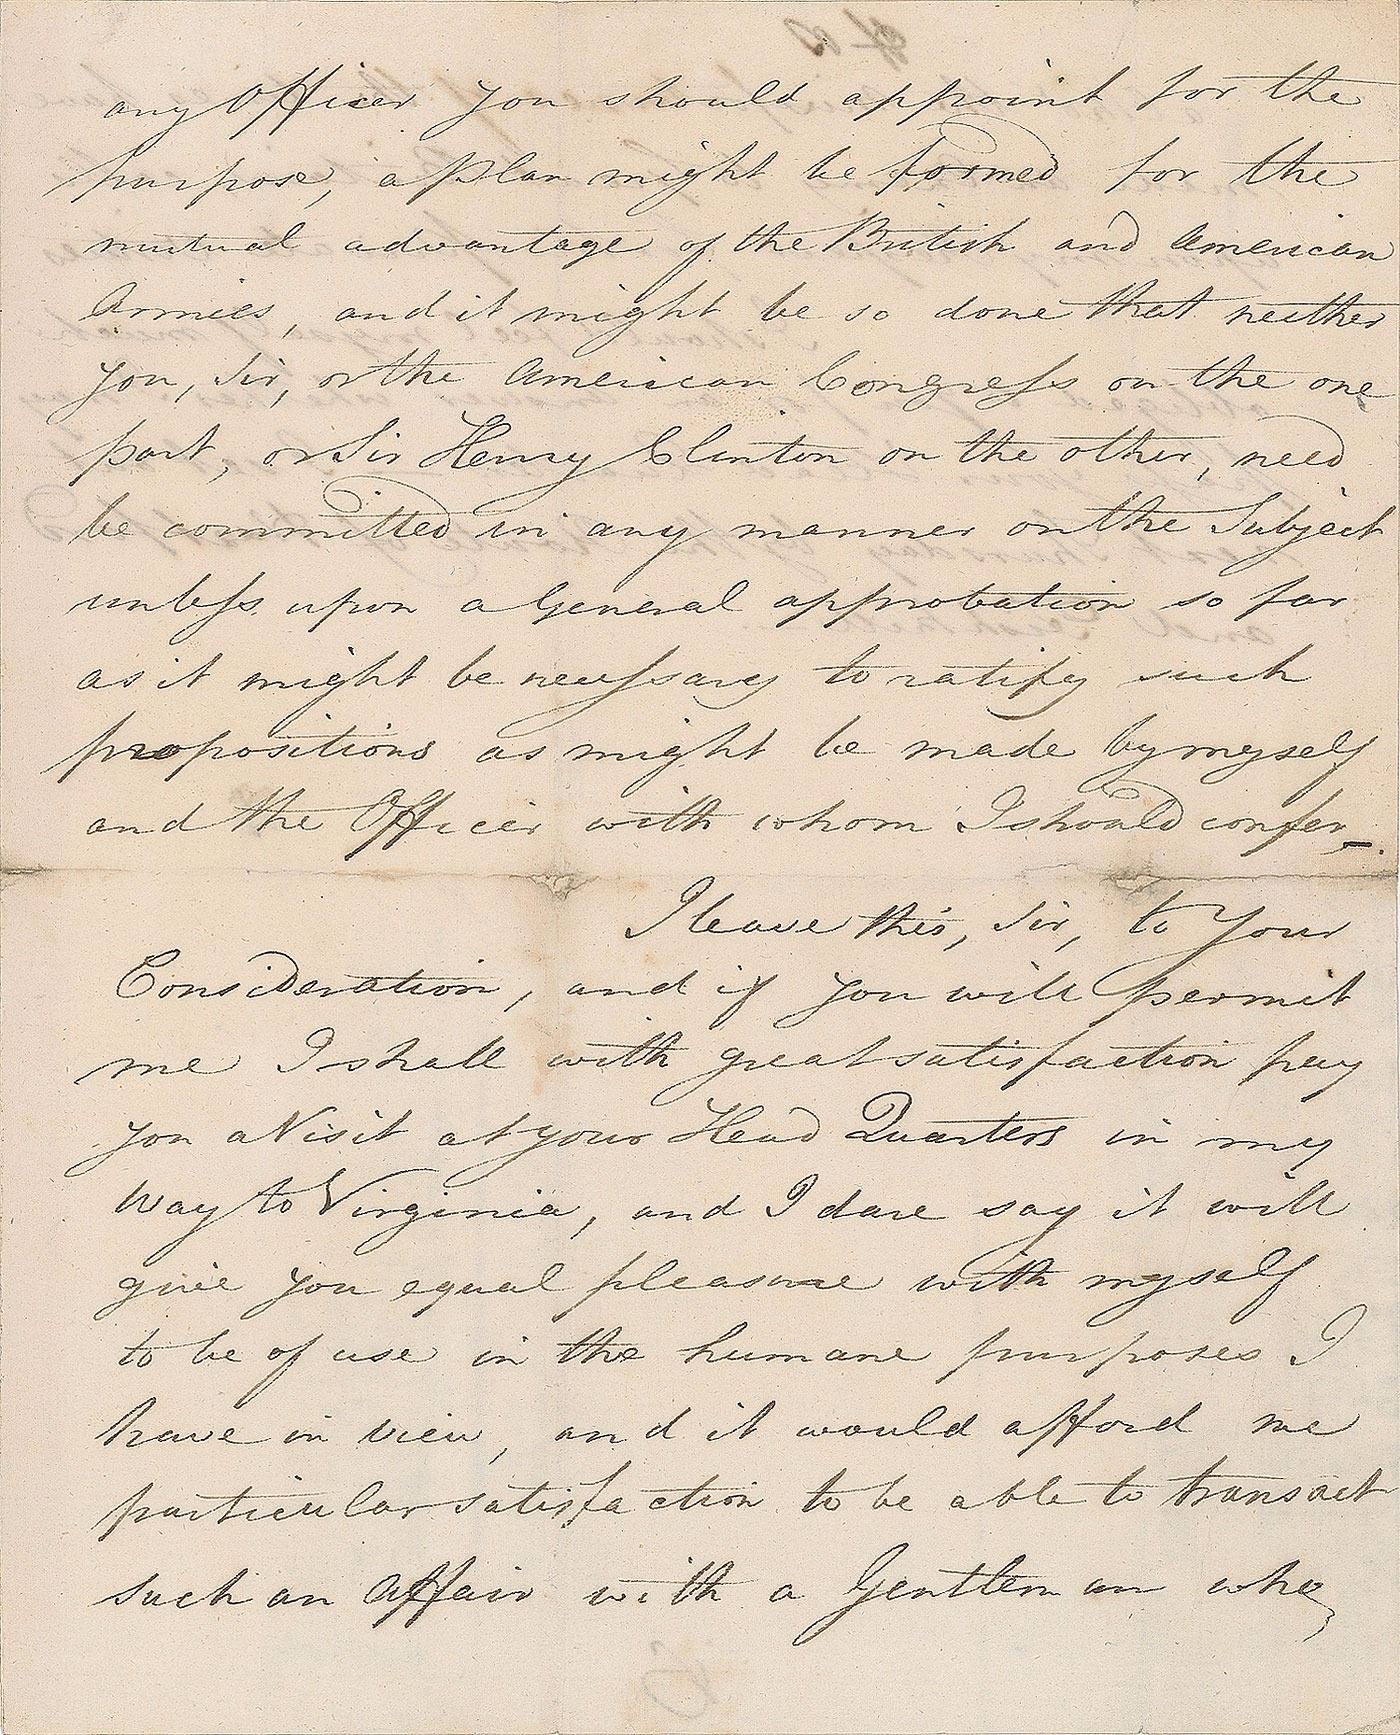 any Officer you should appoint for the
purpose, a plan might be formed for the
mutual advantage of the British and American
Armies, and it might be so done that neither
you, Sir, or the American Congress on the one
part, or Sir Henry Clinton on the other, need
be committed in any manner on the Subject
unless upon a General approbation so far
as it might be necessary to ratify such
propositions as might be made by myself
and the Officer with whom I should confer.
I leave this, Sir, to Your
Consideration, and if you will permit
me I shall with great satisfaction pay
you a Visit at your Head Quarters in my
Way to Virginia, and I dare say it will
give you equal pleasure with myself
to be of use in the humane purposes I
have in view, and it would afford me
particular satisfaction to be able to transact
such an Affair with a Gentleman who,